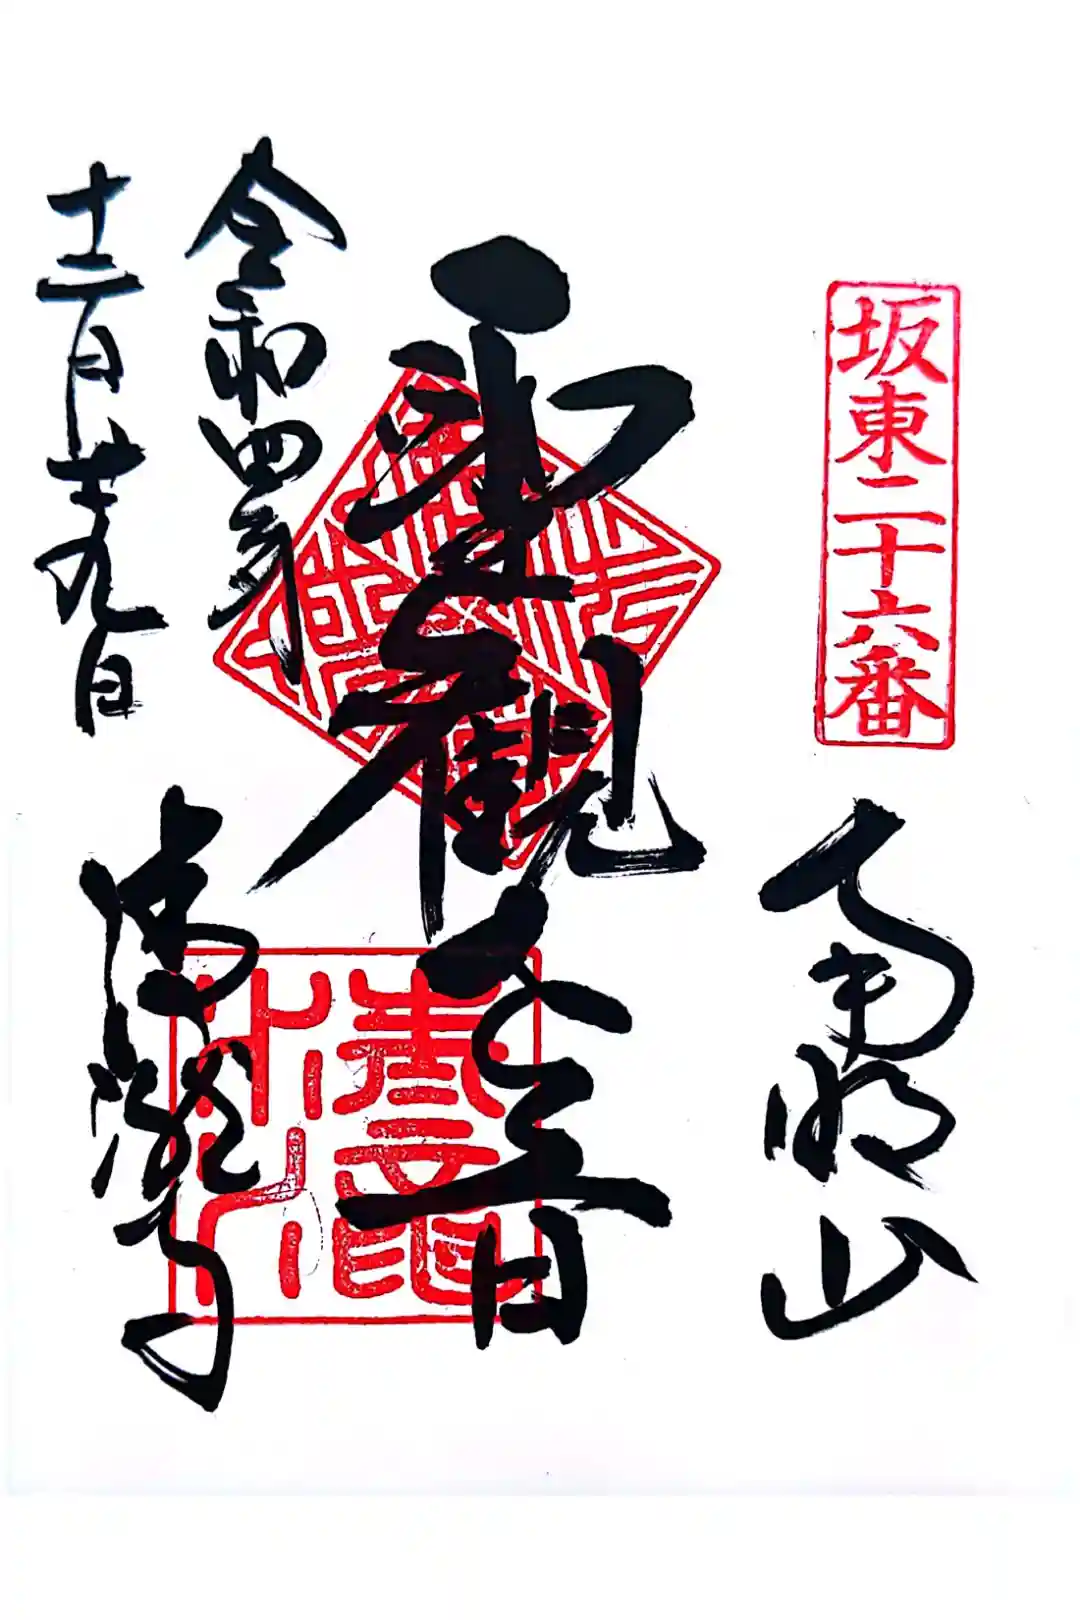 坂東二十六番
南明山
聖観世音
令和四年
十二月廿九日
清瀧寺